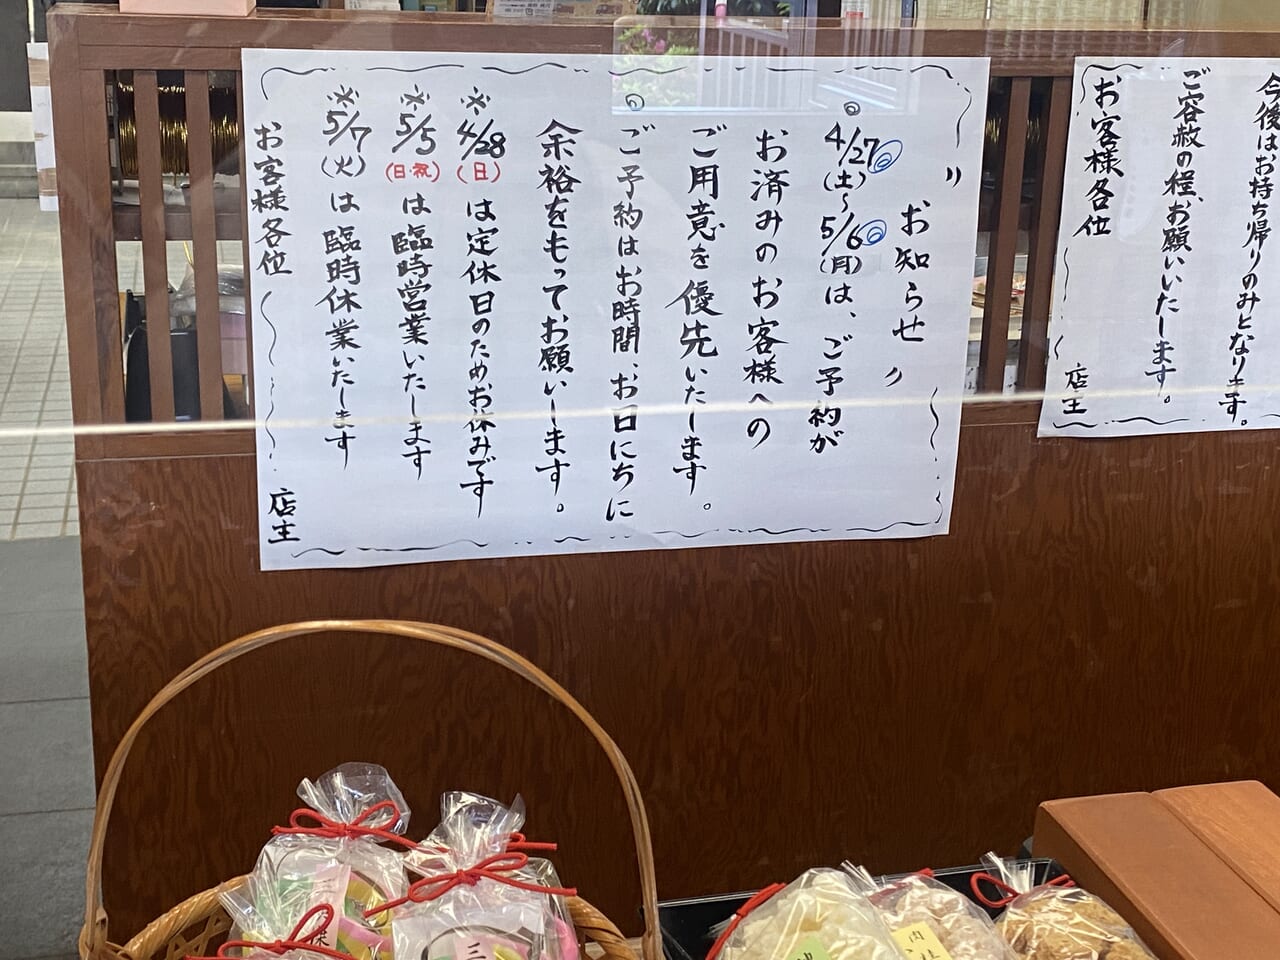 〃お知らせ〃
◎4/27(土)〜5/6(月)は、ご予約が
お済みのお客様への
ご用意を優先いたします。
◎ご予約はお時間、お日にちに
余裕をもってお願いします。
※4/28(日)は定休日のためお休みです
※5/5(日・祝)は臨時営業いたします
※5/7(火)は臨時休業いたします
お客様各位 店主
今後はお持ち帰りのみとなります。
ご容赦の程、お願いいたします。
お客様各位 店主